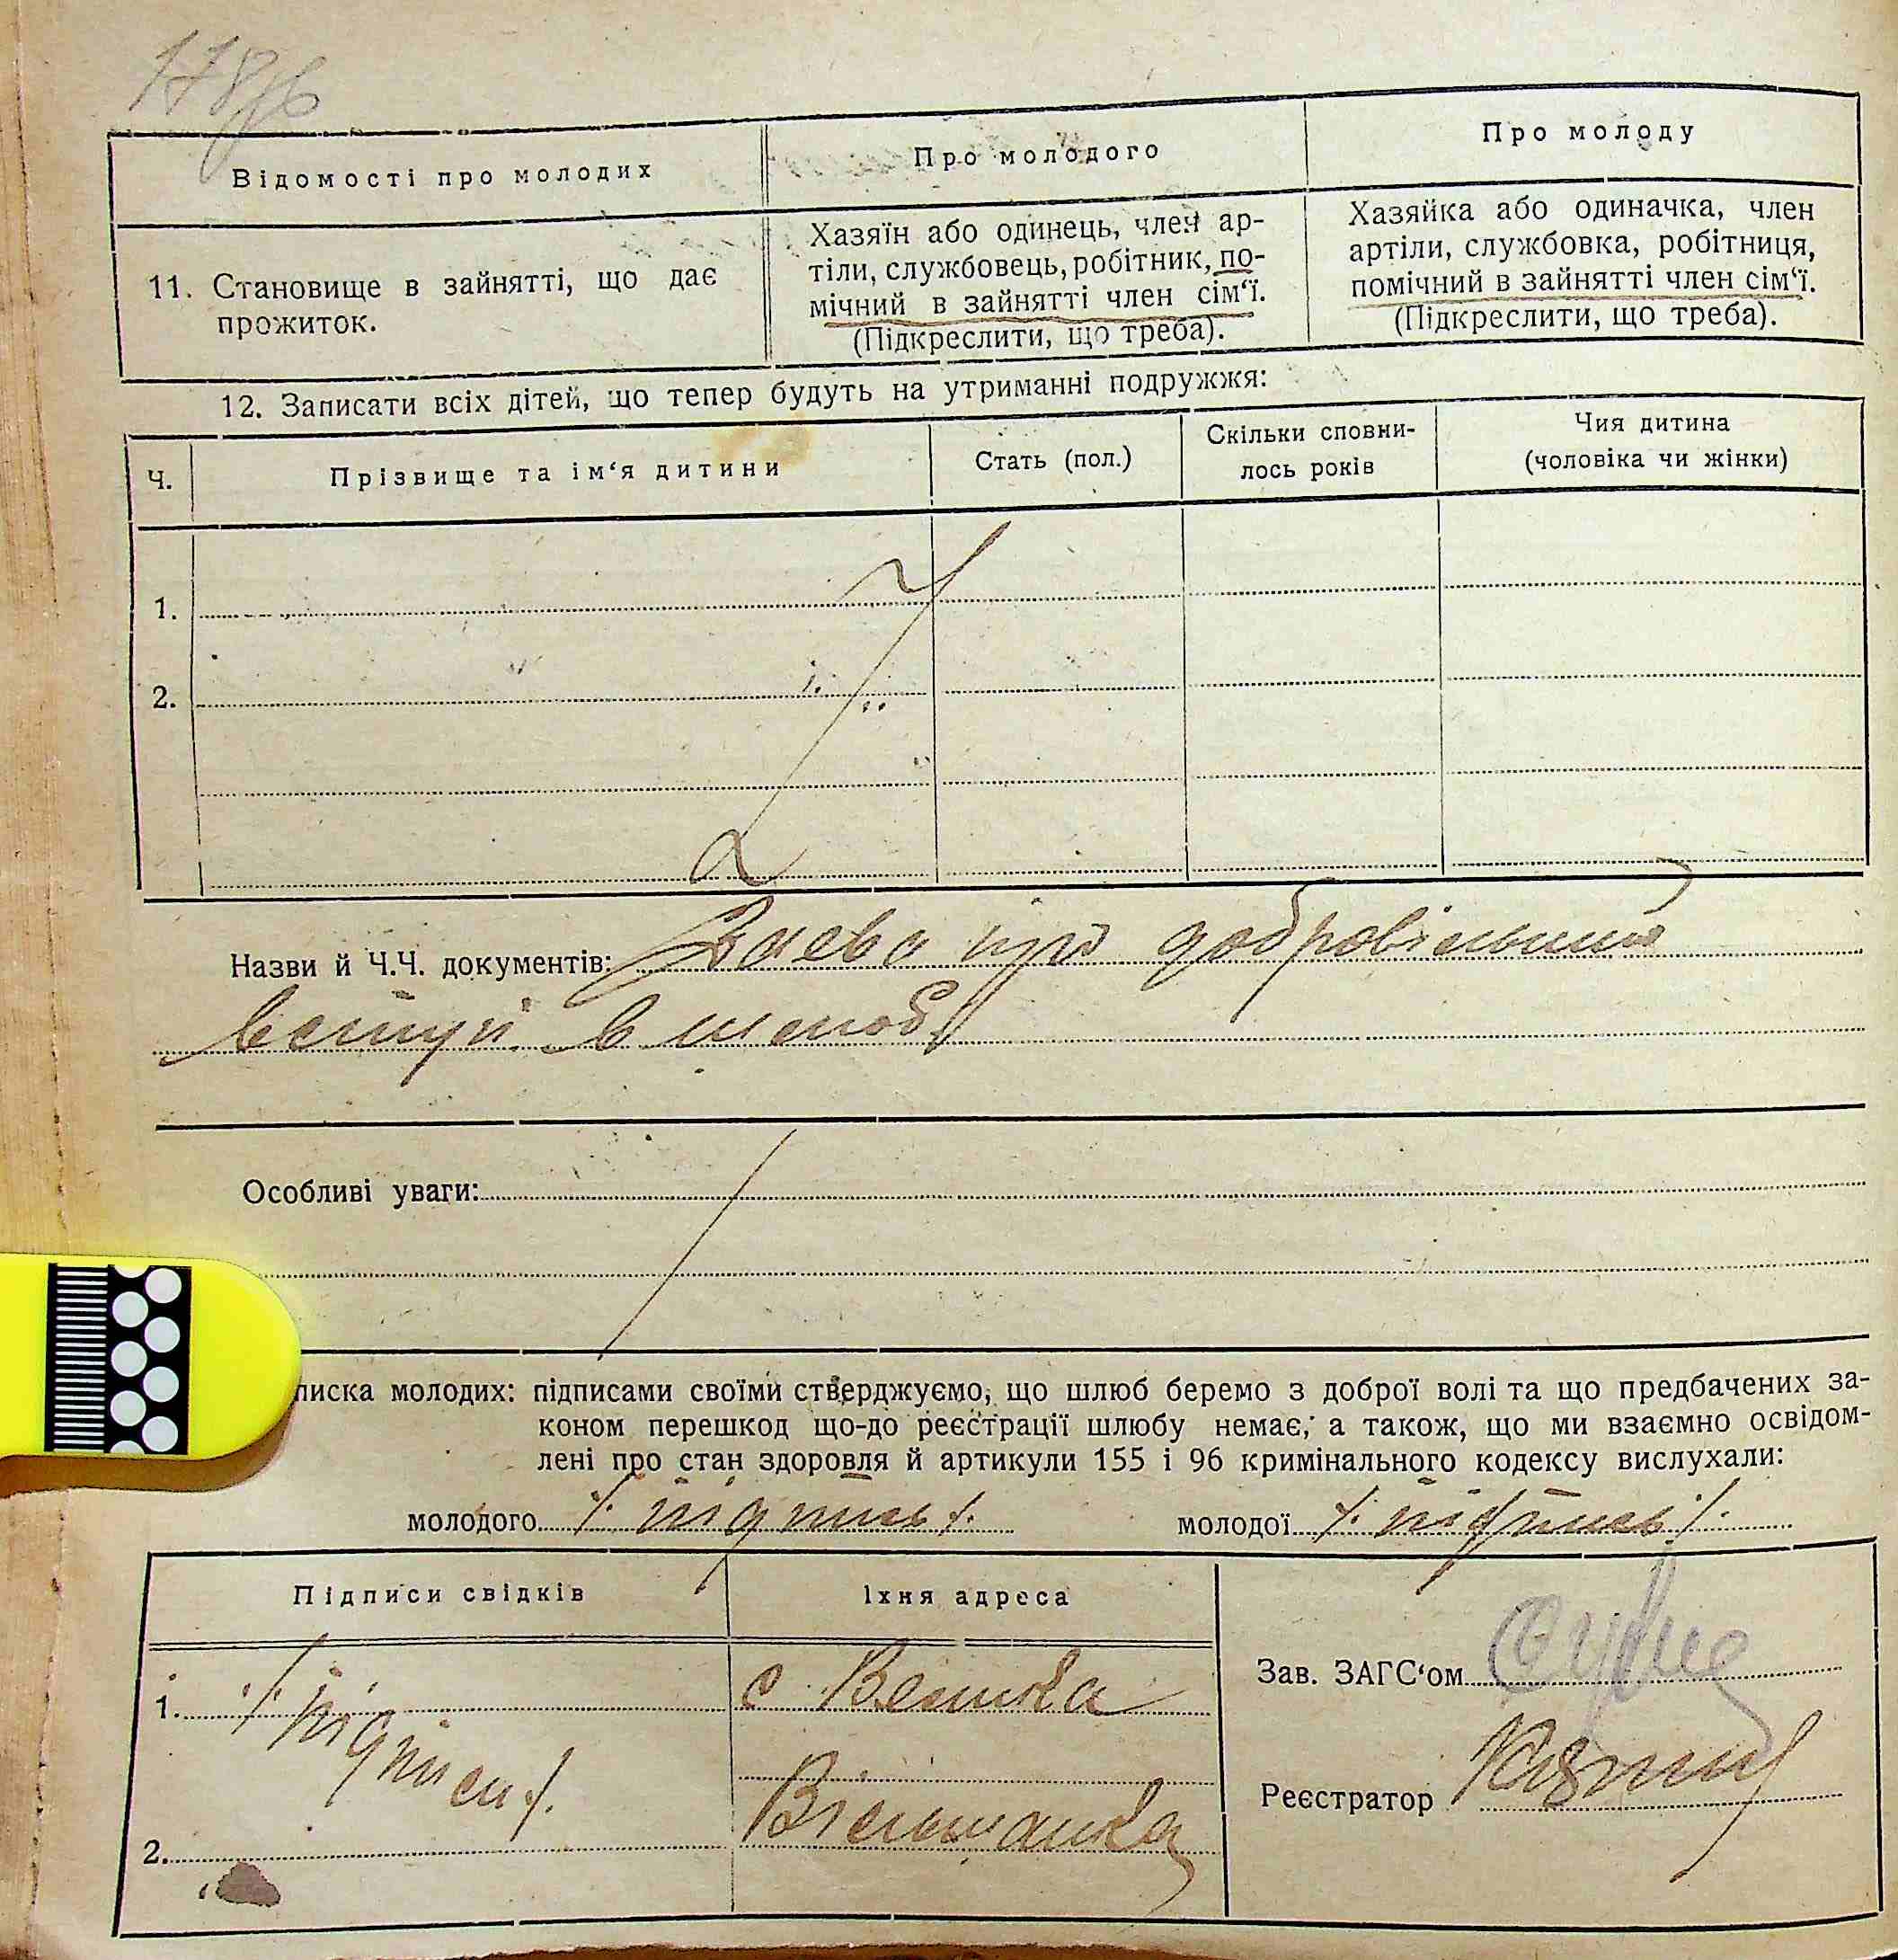 178
Відомості про молодих
Про молодого
Про молоду
11. Становище в зайнятті, що дає
прожиток.
Хазяїн або одинець, член ар-
тіли, службовець, робітник, по-
мічний в зайнятті член сім‘ї.
(Підкреслити, що треба).
Хазяйка або одиначка, член
артіли, службовка, робітниця,
помічний в зайнятті член сім‘ї.
(Підкреслити, що треба).
12. Записати всіх дітей, що тепер будуть на утриманні подружжя:
Ч.
Прізвище та ім‘я дитини
Стать (пол.)
Скільки сповни-
лось років
Чия дитина
(чоловіка чи жінки)
1.
2.
Назви й Ч.Ч. документів: Заева про добровільний
вступ в шлюб
Особливі уваги:
писка молодих: підписами своїми стверджуємо, що шлюб беремо з доброї волі та що предбачених за-
коном перешкод що-до реєстрації шлюбу немає; а також, що ми взаємно освідом-
лені про стан здоровля й артикули 155 і 96 кримінального кодексу вислухали:
молодого /. підпись /.
молодої /. підпись /.
Підписи свідків
Їхня адреса
1. /. підписи /.
с. Велика
Вільшанка
2.
Зав. ЗАГС‘ом
Реєстратор